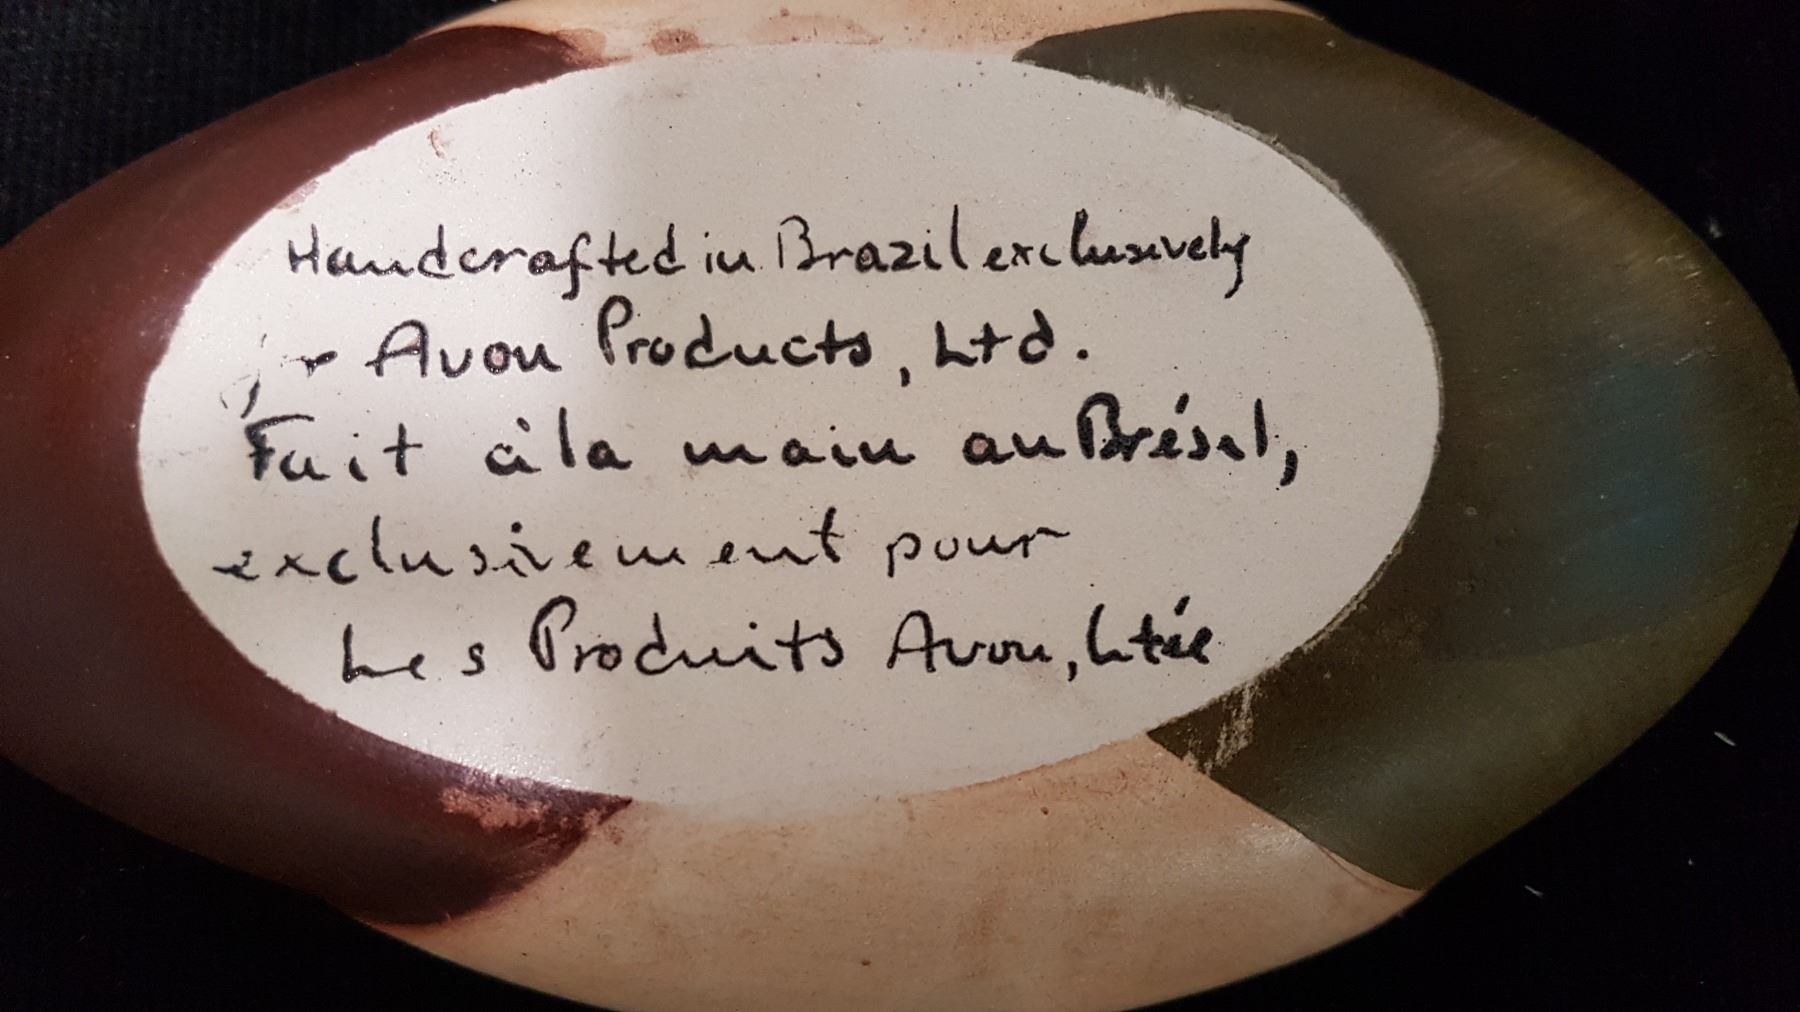 Handcrafted in Brazil exclusively
Avon Products, Ltd.
Fait à la main au Brésil,
exclusivement pour
Les Produits Avon, Ltée